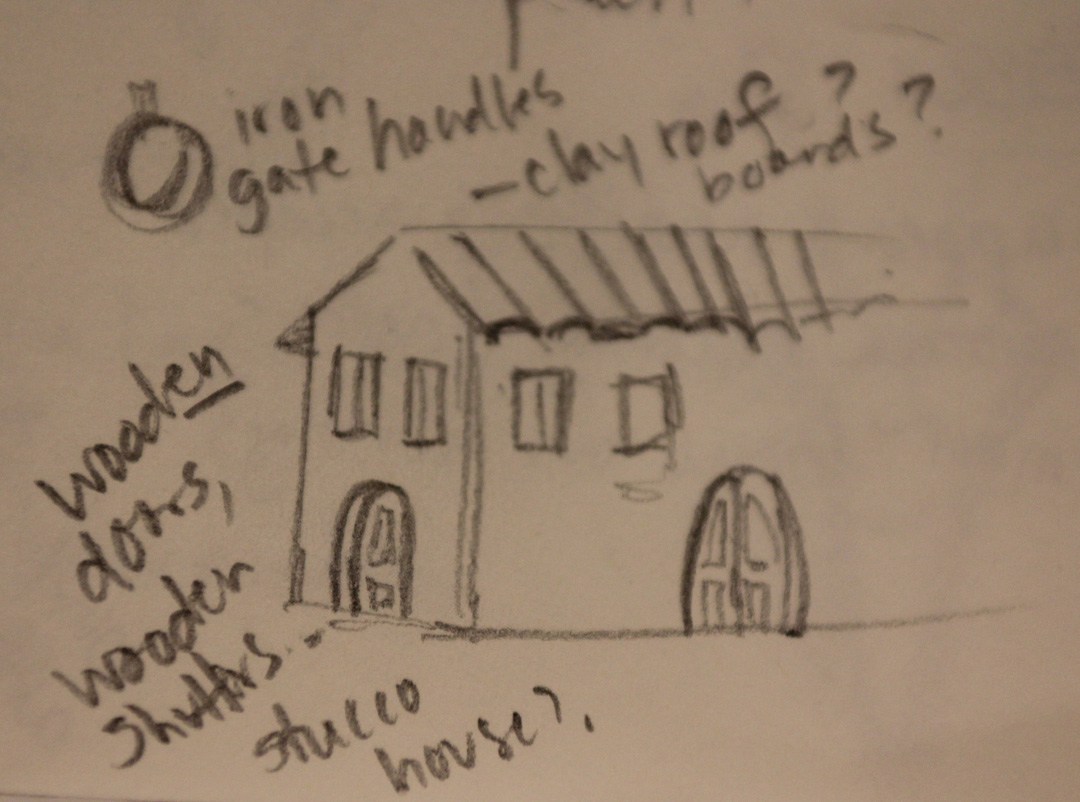 iron
gate handles
-clay roof ?
boards?
wooden
doors,
wooden
shutters..
stucco
house?.